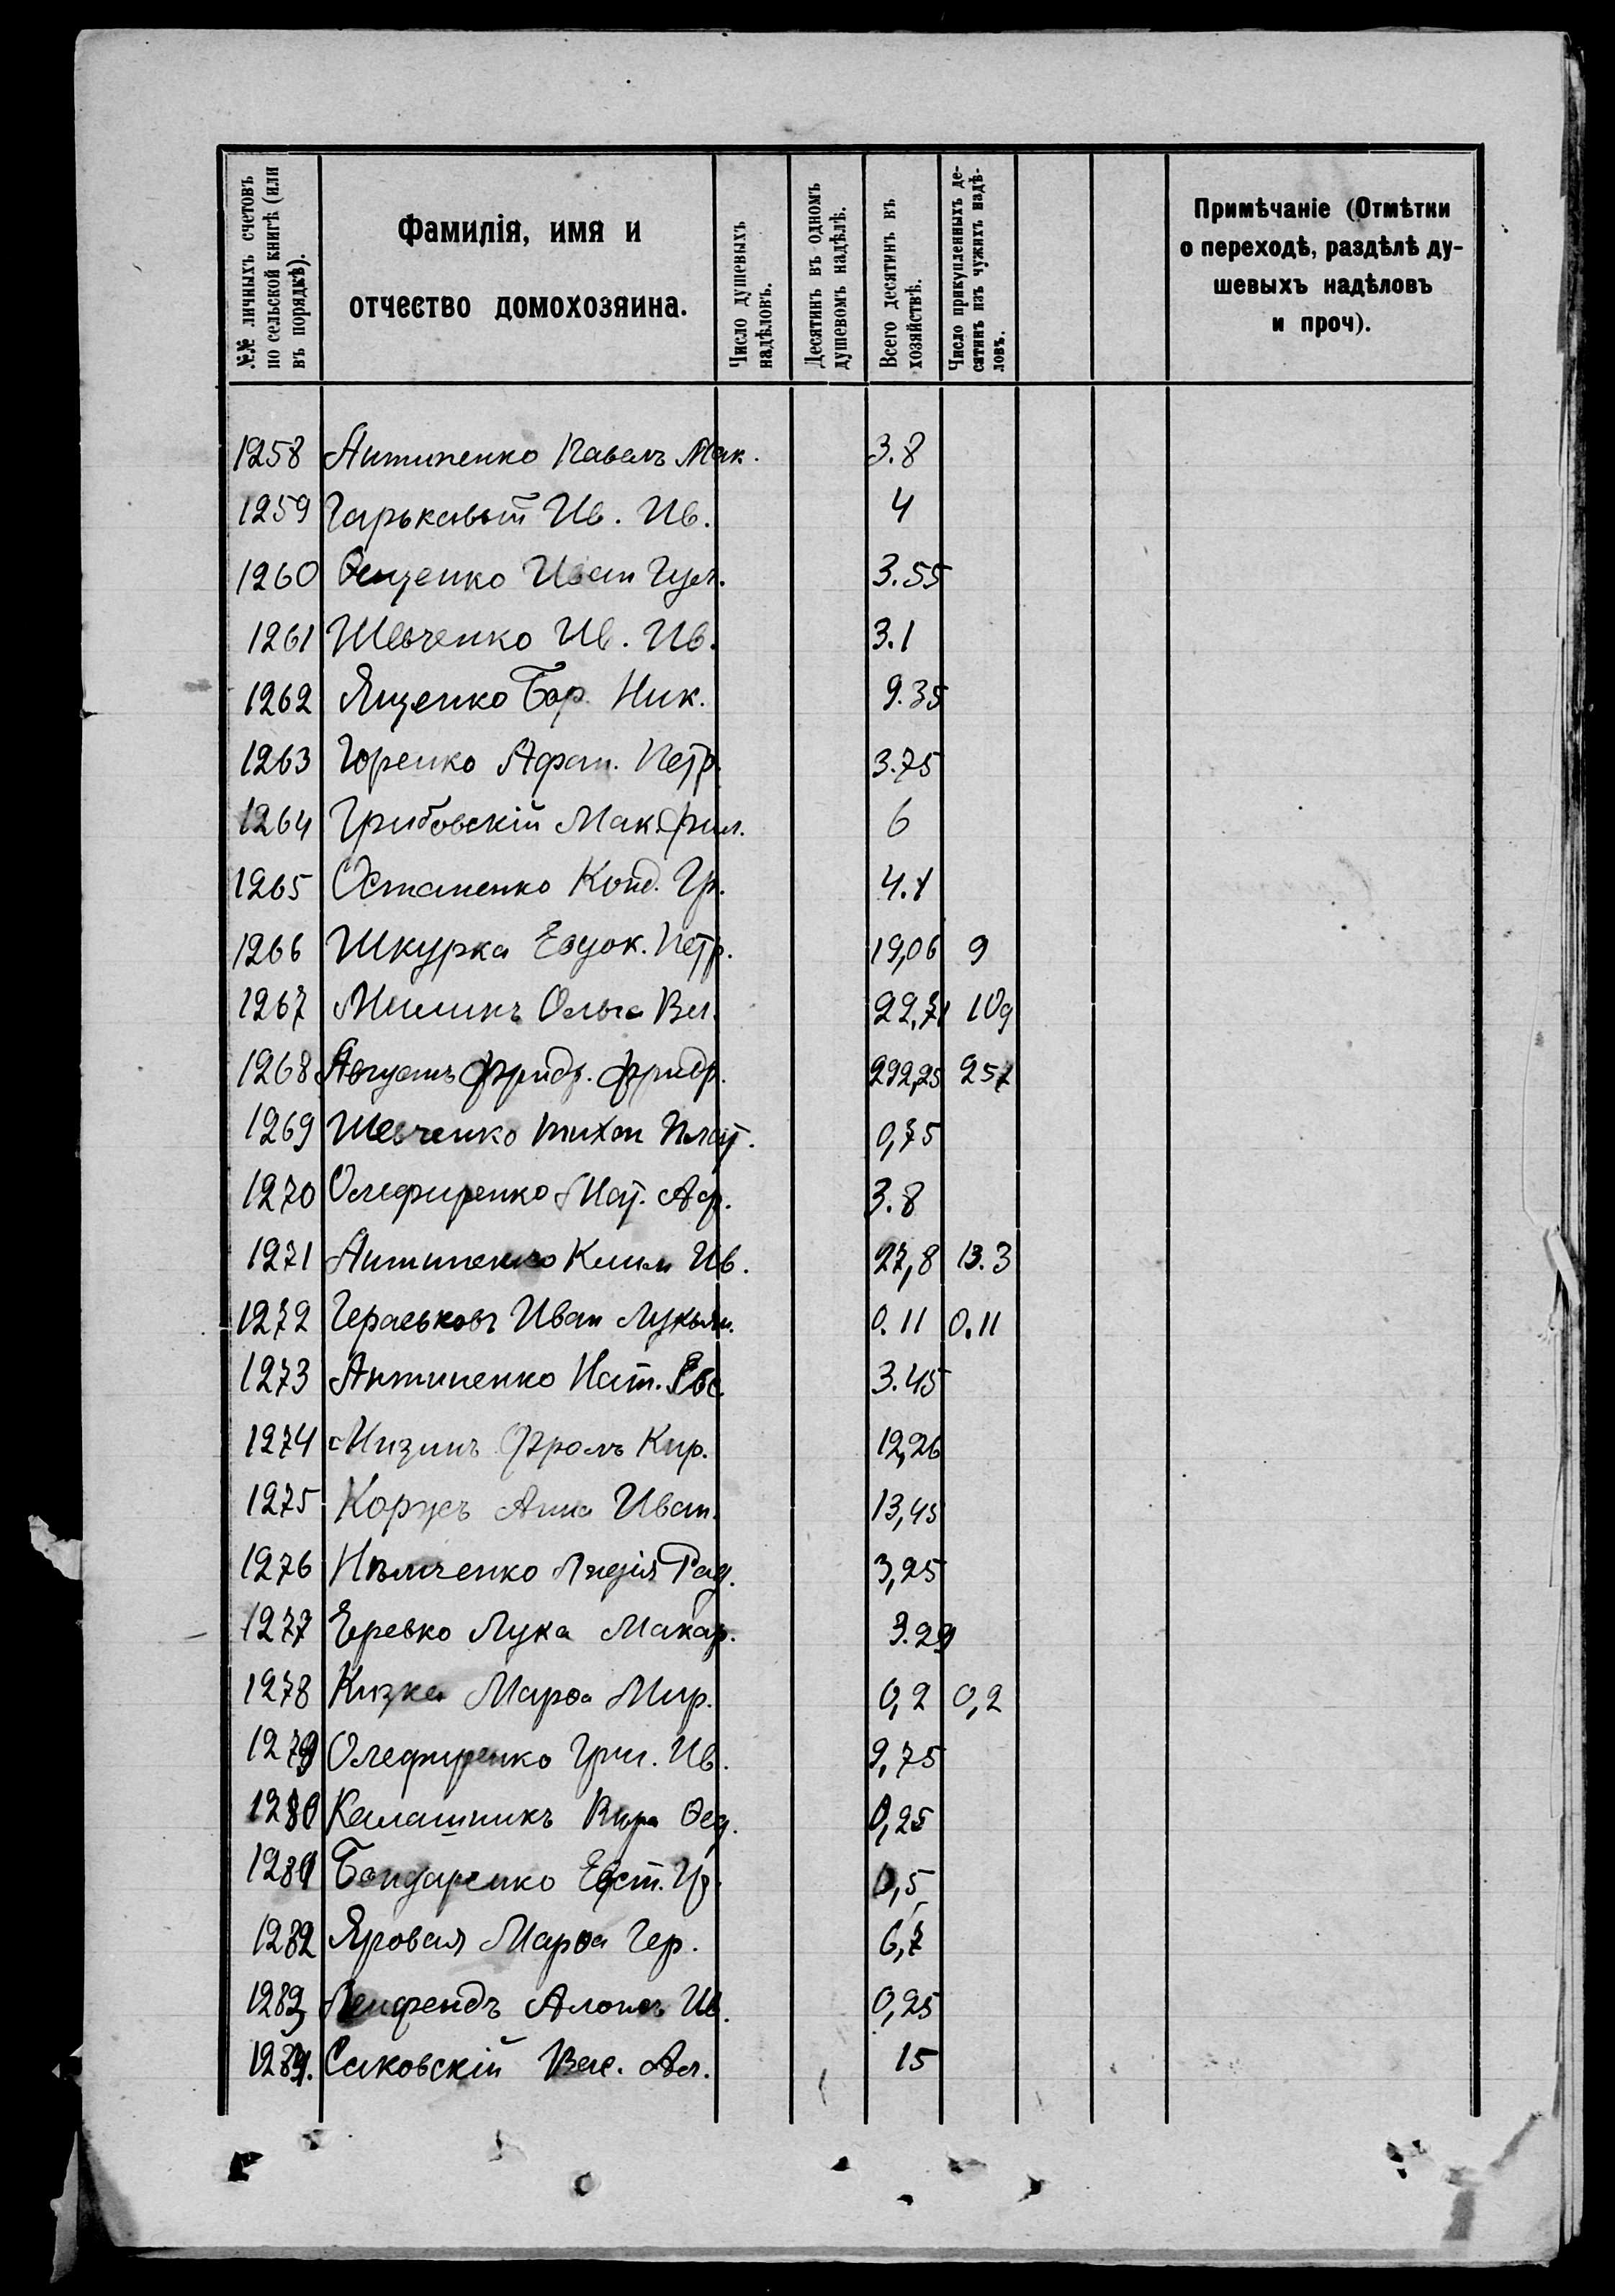 №№ личныхъ счетовъ по сельской книгѣ (или въ порядкѣ).
Фамилія, имя и отчество домохозяина.
Число душевыхъ надѣловъ.
Десятинъ въ одномъ душевомъ надѣлѣ.
Всего десятинъ въ хозяйствѣ.
Число прикупленныхъ десятинъ изъ чужихъ надѣловъ.
Примѣчаніе (Отмѣтки о переходѣ, раздѣлѣ душевыхъ надѣловъ и проч).
1258 Антипенко Павелъ Мак. 3.8
1259 Гарькавый Ив. Ив. 4
1260 Иван 3.55
1261 Шевченко Ив. Ив. 3.1
1262 Ященко Бор. Ник. 9.35
1263 Горенко Афан. Петр. 3.75
1264 Грибовскій Мак. Фил. 6
1265 Остапенко Конд. Гр. 4.1
1266 Шкурка Евдок. Петр. 19,06 9
1267 Ольга 22,71
1268 Августъ Фридр. Фридр. 292,25 257
1269 Шевченко Тихон Плат. 0,75
1270 Олефиренко Игн. Аф. 3.8
1271 Антипенко Клим Ив. 27,8 13.3
1272 Гераськовъ Иван Лукьян. 0.11 0.11
1273 Антипенко Нат. Евс. 3.45
1274 Мизинъ Фролъ Кир. 12,26
1275 Коржъ Анна Иван. 13,45
1276 Нѣмченко Лидія Рад. 3,25
1277 Еревко Лука Макар. 3.29
1278 Кизка Марѳа Мир. 0,2 0,2
1279 Олефиренко Гри. Ив. 9,75
1280 Калашникъ Вѣра Ѳед. 0,25
1281 Бондаренко Евст. Гр. 0,5
1282 Яровая Марѳа Гер. 6,7
1283 Ив. 0,25
1284. Саковскій Вас. Ал. 15